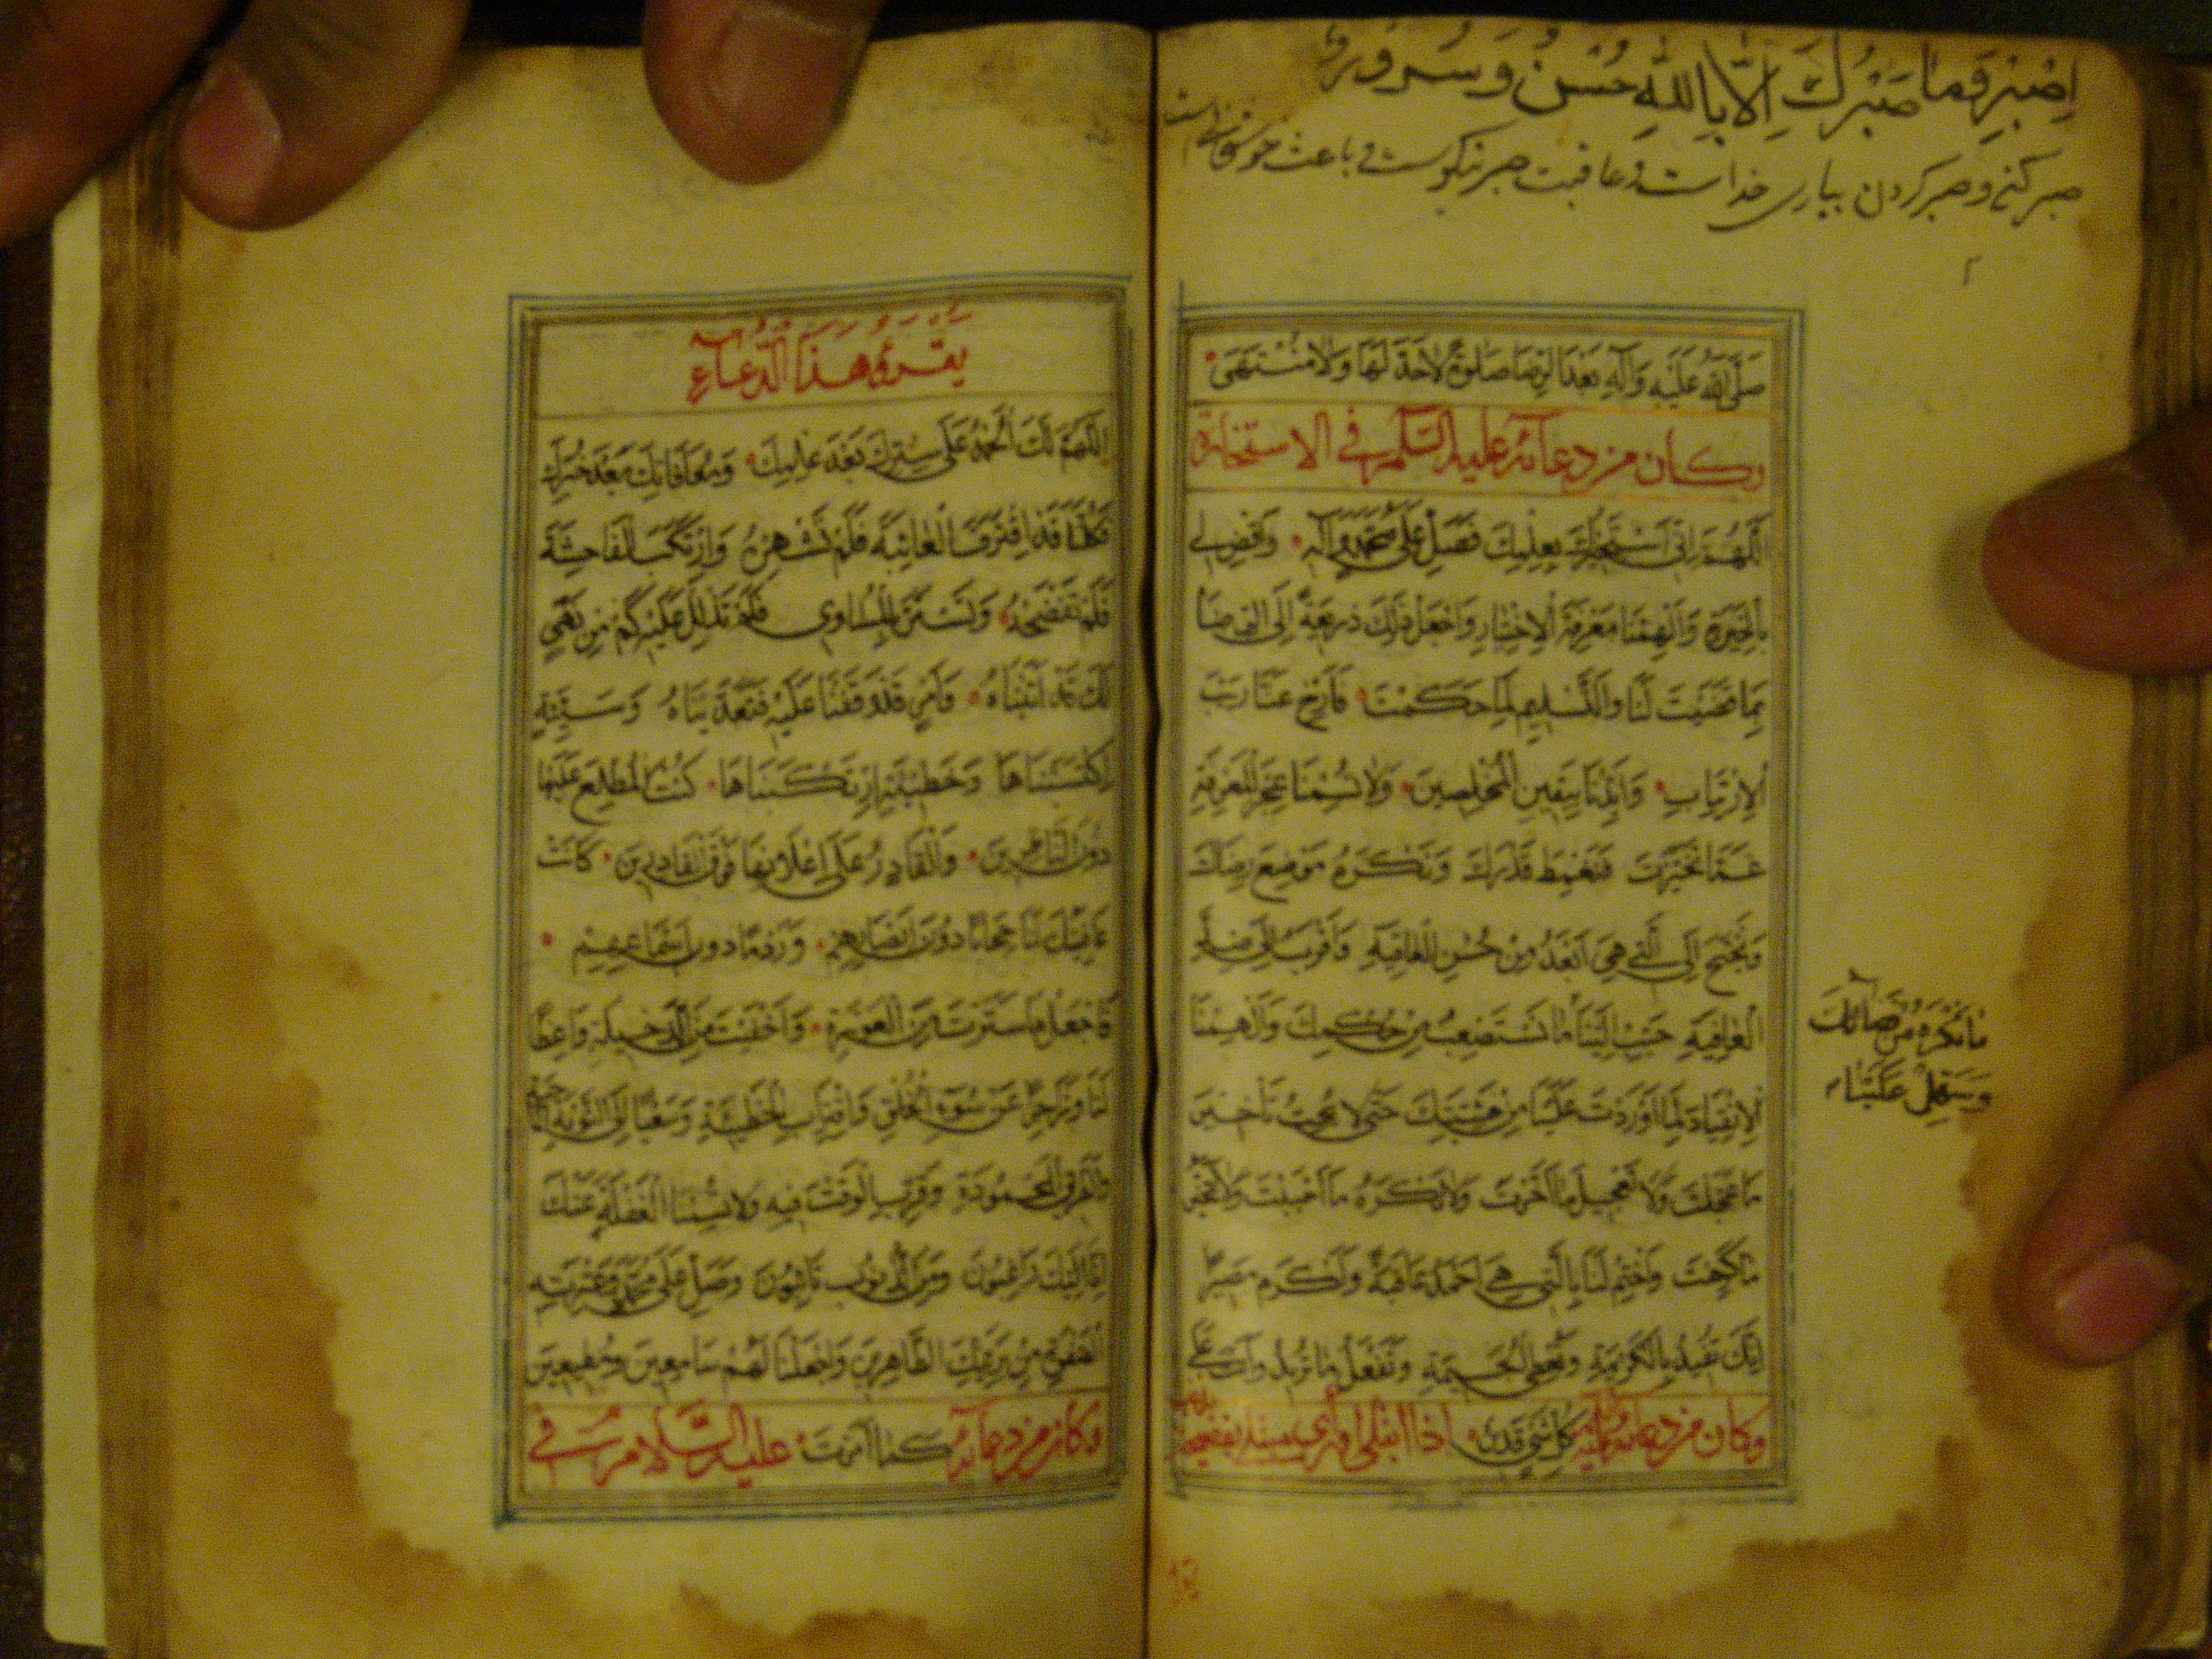 اِصْبِرْ وَمَا صَبْرُكَ اِلَّا بِاللّٰهِ حُسْن وَسُرور
صبر کن و صبر کردن بیاری خداست و عاقبت صبر نیکوست و باعث
صَلَّى اللّٰهُ عَلَيْهِ وَآلِهِ بَعْدَ الرِّضَا صَلٰوةً لَاحَدَّ لَهَا وَلَا مُنْتَهَى
وكان من دعائه عليه السلم في الاستخارة
اَللّٰهُمَّ اِنِّي اَسْتَخِيرُكَ بِعِلْمِكَ فَصَلِّ عَلٰى مُحَمَّدٍ وَآلِهِ وَاقْضِ لِي
بِالْخِيَرَةِ وَاَلْهِمْنَا مَعْرِفَةَ الْاِخْتِيَارِ وَاجْعَلْ ذٰلِكَ ذَرِيعَةً اِلَى الرِّضَا
بِمَا قَضَيْتَ لَنَا وَالتَّسْلِيمِ لِمَا حَكَمْتَ فَاَزِحْ عَنَّا رَيْبَ
الْاِرْتِيَابِ وَاَيِّدْنَا بِيَقِينِ الْمُخْلِصِينَ وَلَا تَسُمْنَا عَجْزَ الْمَعْرِفَةِ
عَمَّا تَخَيَّرْتَ فَنَغْمِطَ قَدْرَكَ وَنَكْرَهَ مَوْضِعَ رِضَاكَ
وَنَجْنَحَ اِلَى الَّتِي هِيَ اَبْعَدُ مِنْ حُسْنِ الْعَاقِبَةِ وَاَقْرَبُ اِلٰى ضِدِّ
الْعَافِيَةِ حَبِّبْ اِلَيْنَا مَا نَسْتَصْعِبُ مِنْ حُكْمِكَ وَاَلْهِمْنَا
مَا نَكْرَهُ مِنْ قَضَائِكَ
وَسَهِّلْ عَلَيْنَا
الْاِنْقِيَادَ لِمَا اَوْرَدْتَ عَلَيْنَا مِنْ مَشِيَّتِكَ حَتّٰى لَا نُحِبَّ تَأْخِيرَ
مَا عَجَّلْتَ وَلَا تَعْجِيلَ مَا اَخَّرْتَ وَلَا نَكْرَهَ مَا اَحْبَبْتَ وَلَا نَتَخَيَّرَ
مَا كَرِهْتَ وَاخْتِمْ لَنَا بِالَّتِي هِيَ اَحْمَدُ عَاقِبَةً وَاَكْرَمُ مَصِيرًا
اِنَّكَ تُفِيدُ الْكَرِيمَةَ وَتُعْطِي الْجَسِيمَةَ وَتَفْعَلُ مَا تُرِيدُ وَاَنْتَ عَلٰى
وكان من دعائه عليه كُلِّ شَيْءٍ قَدِيرٌ اذا ابتلى او رأى مبتلى بفضيحة
يقرؤ هذا الدعاء
اَللّٰهُمَّ لَكَ الْحَمْدُ عَلٰى سِتْرِكَ بَعْدَ عِلْمِكَ وَمُعَافَاتِكَ بَعْدَ خُبْرِكَ
فَكُلُّنَا قَدِ اقْتَرَفَ الْعَائِبَةَ فَلَمْ تَشْهَرْهُ وَارْتَكَبَ الْفَاحِشَةَ
فَلَمْ تَفْضَحْهُ وَتَسَتَّرَ بِالْمَسَاوِي فَلَمْ تَدْلُلْ عَلَيْهِ كَمْ مِنْ نَهْيٍ
لَكَ قَدْ اَتَيْنَاهُ وَاَمْرٍ قَدْ وَقَفْتَنَا عَلَيْهِ فَتَعَدَّيْنَاهُ وَسَيِّئَةٍ
اكْتَسَبْنَاهَا وَخَطِيئَةٍ ارْتَكَبْنَاهَا كُنْتَ الْمُطَّلِعَ عَلَيْهَا
دُونَ النَّاظِرِينَ وَالْقَادِرَ عَلٰى اِعْلَانِهَا فَوْقَ الْقَادِرِينَ كَانَتْ
عَافِيَتُكَ لَنَا حِجَابًا دُونَ اَبْصَارِهِمْ وَرَدْمًا دُونَ اَسْمَاعِهِمْ
فَاجْعَلْ مَا سَتَرْتَ مِنَ الْعَوْرَةِ وَاَخْفَيْتَ مِنَ الدَّخِيلَةِ وَاعِظًا
لَنَا وَزَاجِرًا عَنْ سُوءِ الْخُلُقِ وَاقْتِرَافِ الْخَطِيئَةِ وَسَعْيًا اِلَى التَّوْبَةِ الْمَاحِيَةِ
وَالطَّرِيقِ الْمَحْمُودَةِ وَقَرِّبِ الْوَقْتَ فِيهِ وَلَا تَسُمْنَا الْغَفْلَةَ عَنْكَ
اِنَّا اِلَيْكَ رَاغِبُونَ وَمِنَ الذُّنُوبِ تَائِبُونَ وَصَلِّ عَلٰى مُحَمَّدٍ وَعِتْرَتِهِ
الصَّفْوَةِ مِنْ بَرِيَّتِكَ الطَّاهِرِينَ وَاجْعَلْنَا لَهُمْ سَامِعِينَ وَمُطِيعِينَ
وكان من دعائه كَمَا اَمَرْتَ عليه السلام في